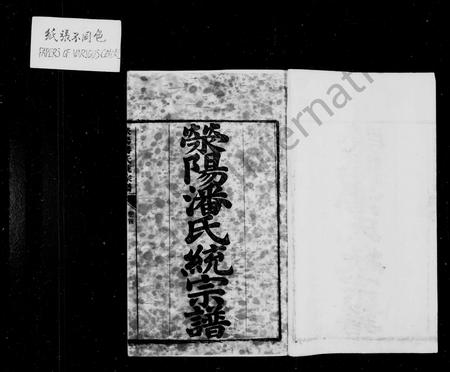 紙張不同色
PAPERS OF VARIOUS COLORS
滎陽潘氏統宗譜